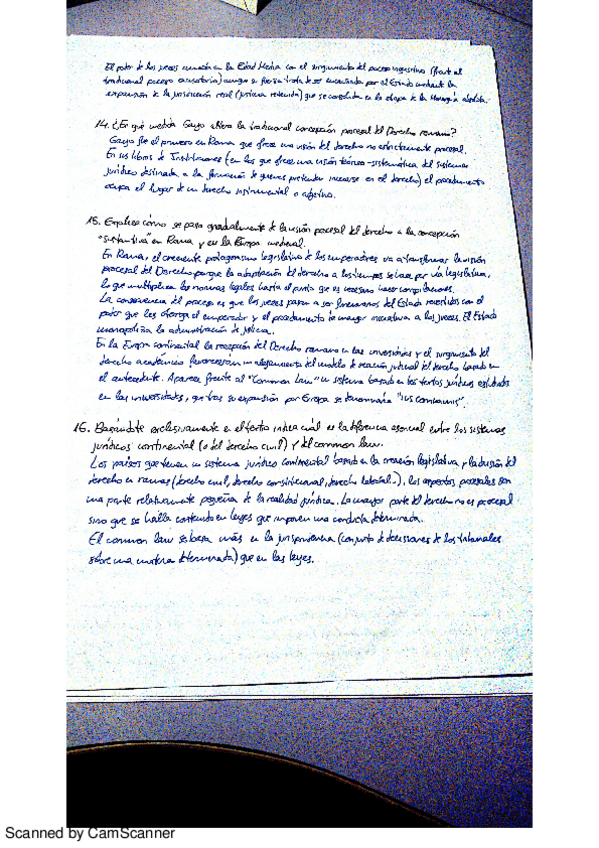 El poder de los jueces aumenta en la Edad Media con el surgimiento del proceso inquisitivo (frente al
tradicional proceso acusatorio) aunque se fuerza trata de ser encauzada por el Estado mediante la
expansión de la jurisdicción real (justicia retenida) que se consolida en la etapa de la Monarquía absoluta.
14. ¿En qué medida Gayo altera la tradicional concepción procesal del Derecho romano?
Gayo fue el primero en Roma que ofrece una visión del derecho no estrictamente procesal.
En sus libros de Instituciones (en los que ofrece una visión teórico-sistemática del sistema
jurídico destinada a la formación de quienes pretenden iniciarse en el derecho) el procedimiento
ocupa el lugar de un derecho instrumental o adjetivo.
15. Explica cómo se pasa gradualmente de la visión procesal del derecho a la concepción
"sustantiva" en Roma y en la Europa medieval.
En Roma, el creciente protagonismo legislativo de los emperadores va a transformar la visión
procesal del Derecho porque la adaptación del derecho a los tiempos se hace por vía legislativa,
lo que multiplica las normas legales hasta el punto que es necesario hacer compilaciones.
La consecuencia del proceso es que los jueces pasan a ser funcionarios del Estado revestidos con el
poder que les otorga el emperador y el procedimiento da mayor iniciativa a los jueces. El Estado
monopoliza la administración de justicia.
En la Europa continental la recepción del Derecho romano en las universidades y el surgimiento del
derecho académico favorecerán un alejamiento del modelo de creación judicial del derecho basado en
el antecedente. Aparece frente al "Common Law" un sistema basado en los textos jurídicos estudiados
en las universidades, que tras su expansión por Europa se denominaría "ius commune".
16. Basándote exclusivamente en el texto indica cuál es la diferencia esencial entre los sistemas
jurídicos continental (o del derecho civil) y del common law.
Los países que tienen un sistema jurídico continental basado en la creación legislativa y la división del
derecho en ramas (derecho civil, derecho constitucional, derecho laboral...), los aspectos procesales son
una parte relativamente pequeña de la realidad jurídica. La mayor parte del derecho no es procesal
sino que se halla contenido en leyes que imponen una conducta determinada.
El common law se basa más en la jurisprudencia (conjunto de decisiones de los tribunales
sobre una materia determinada) que en las leyes.
Scanned by CamScanner